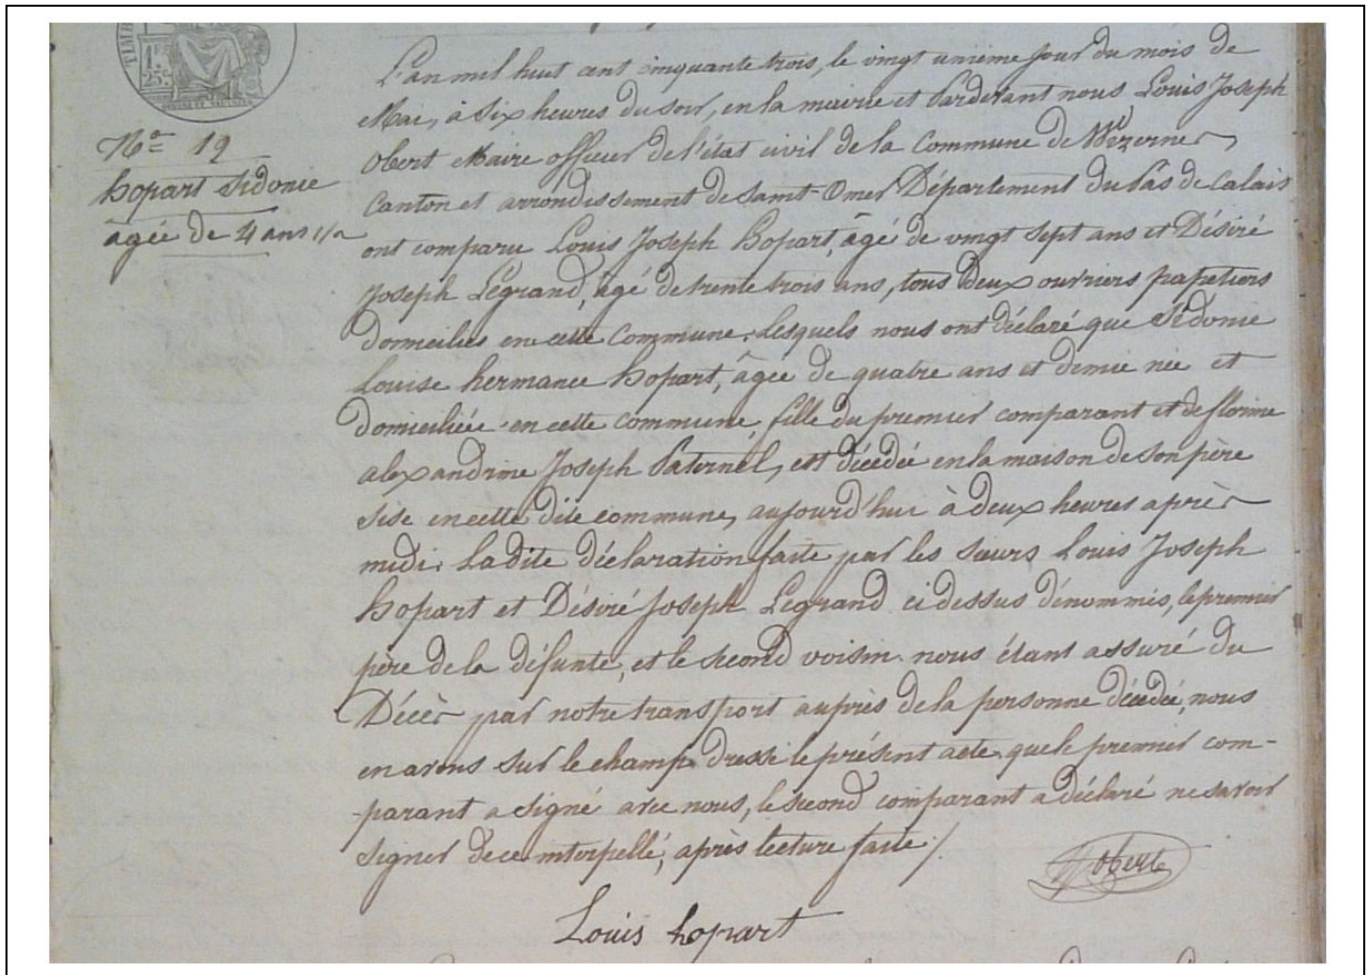 TIMB
1F
25c
N.o 19
hopart Sidonie
âgée de 4 ans 1/2
L'an mil huit cent cinquante trois, le vingt unième jour du mois de
Mai, à six heures du soir, en la mairie et Pardevant nous Louis Joseph
Obert Maire officier de l'état civil de la Commune de Wizernes
Canton et arrondissement de Saint-Omer Département du Pas de Calais
ont comparu Louis Joseph hopart, âgé de vingt sept ans et Désiré
Joseph Legrand, âgé de trente trois ans, tous deux ouvriers papetiers
Domiciliés en cette Commune. Lesquels nous ont déclaré que Sidonie
Louise hermance hopart, âgée de quatre ans et demie née et
domiciliée en cette commune, fille du premier comparant et de florine
alexandrine Joseph Paternel, est décédée en la maison de son père
sise en cette dite commune, aujourd'hui à deux heures après
midi. La dite déclaration faite par les sieurs Louis Joseph
hopart et Désiré Joseph Legrand ci dessus dénommés, le premier
père de la défunte, et le second voisin. nous étant assuré du
Décès par notre transport auprès de la personne décédée, nous
en avons sur le champ dressé le présent acte que le premier com-
-parant a signé avec nous, le second comparant a déclaré ne savoir
signer de ce interpellé, après lecture faite /.
Obert
Louis hopart